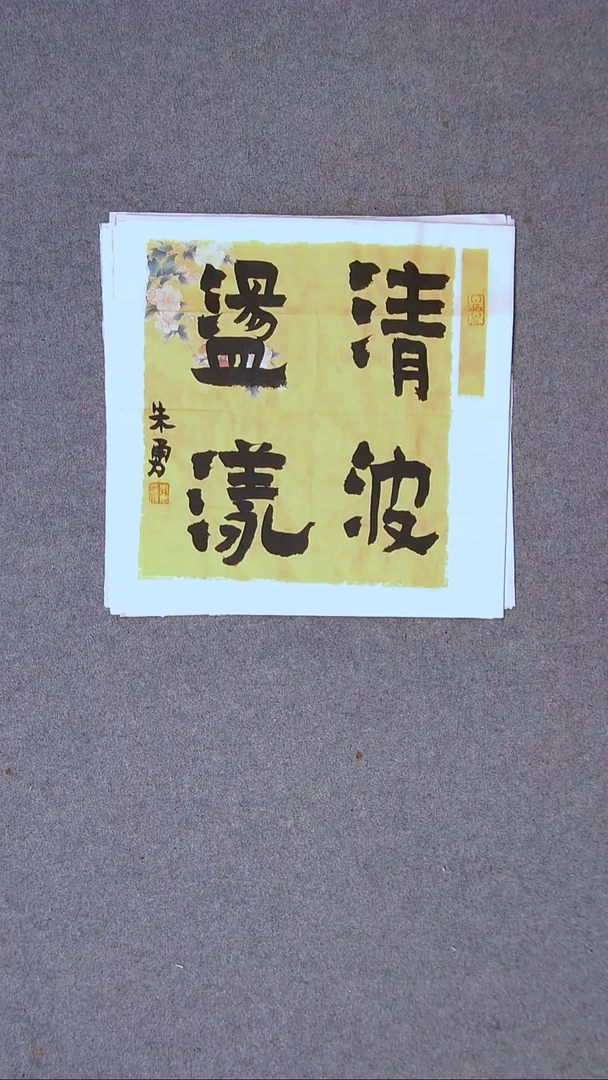 清波
盪漾
朱勇